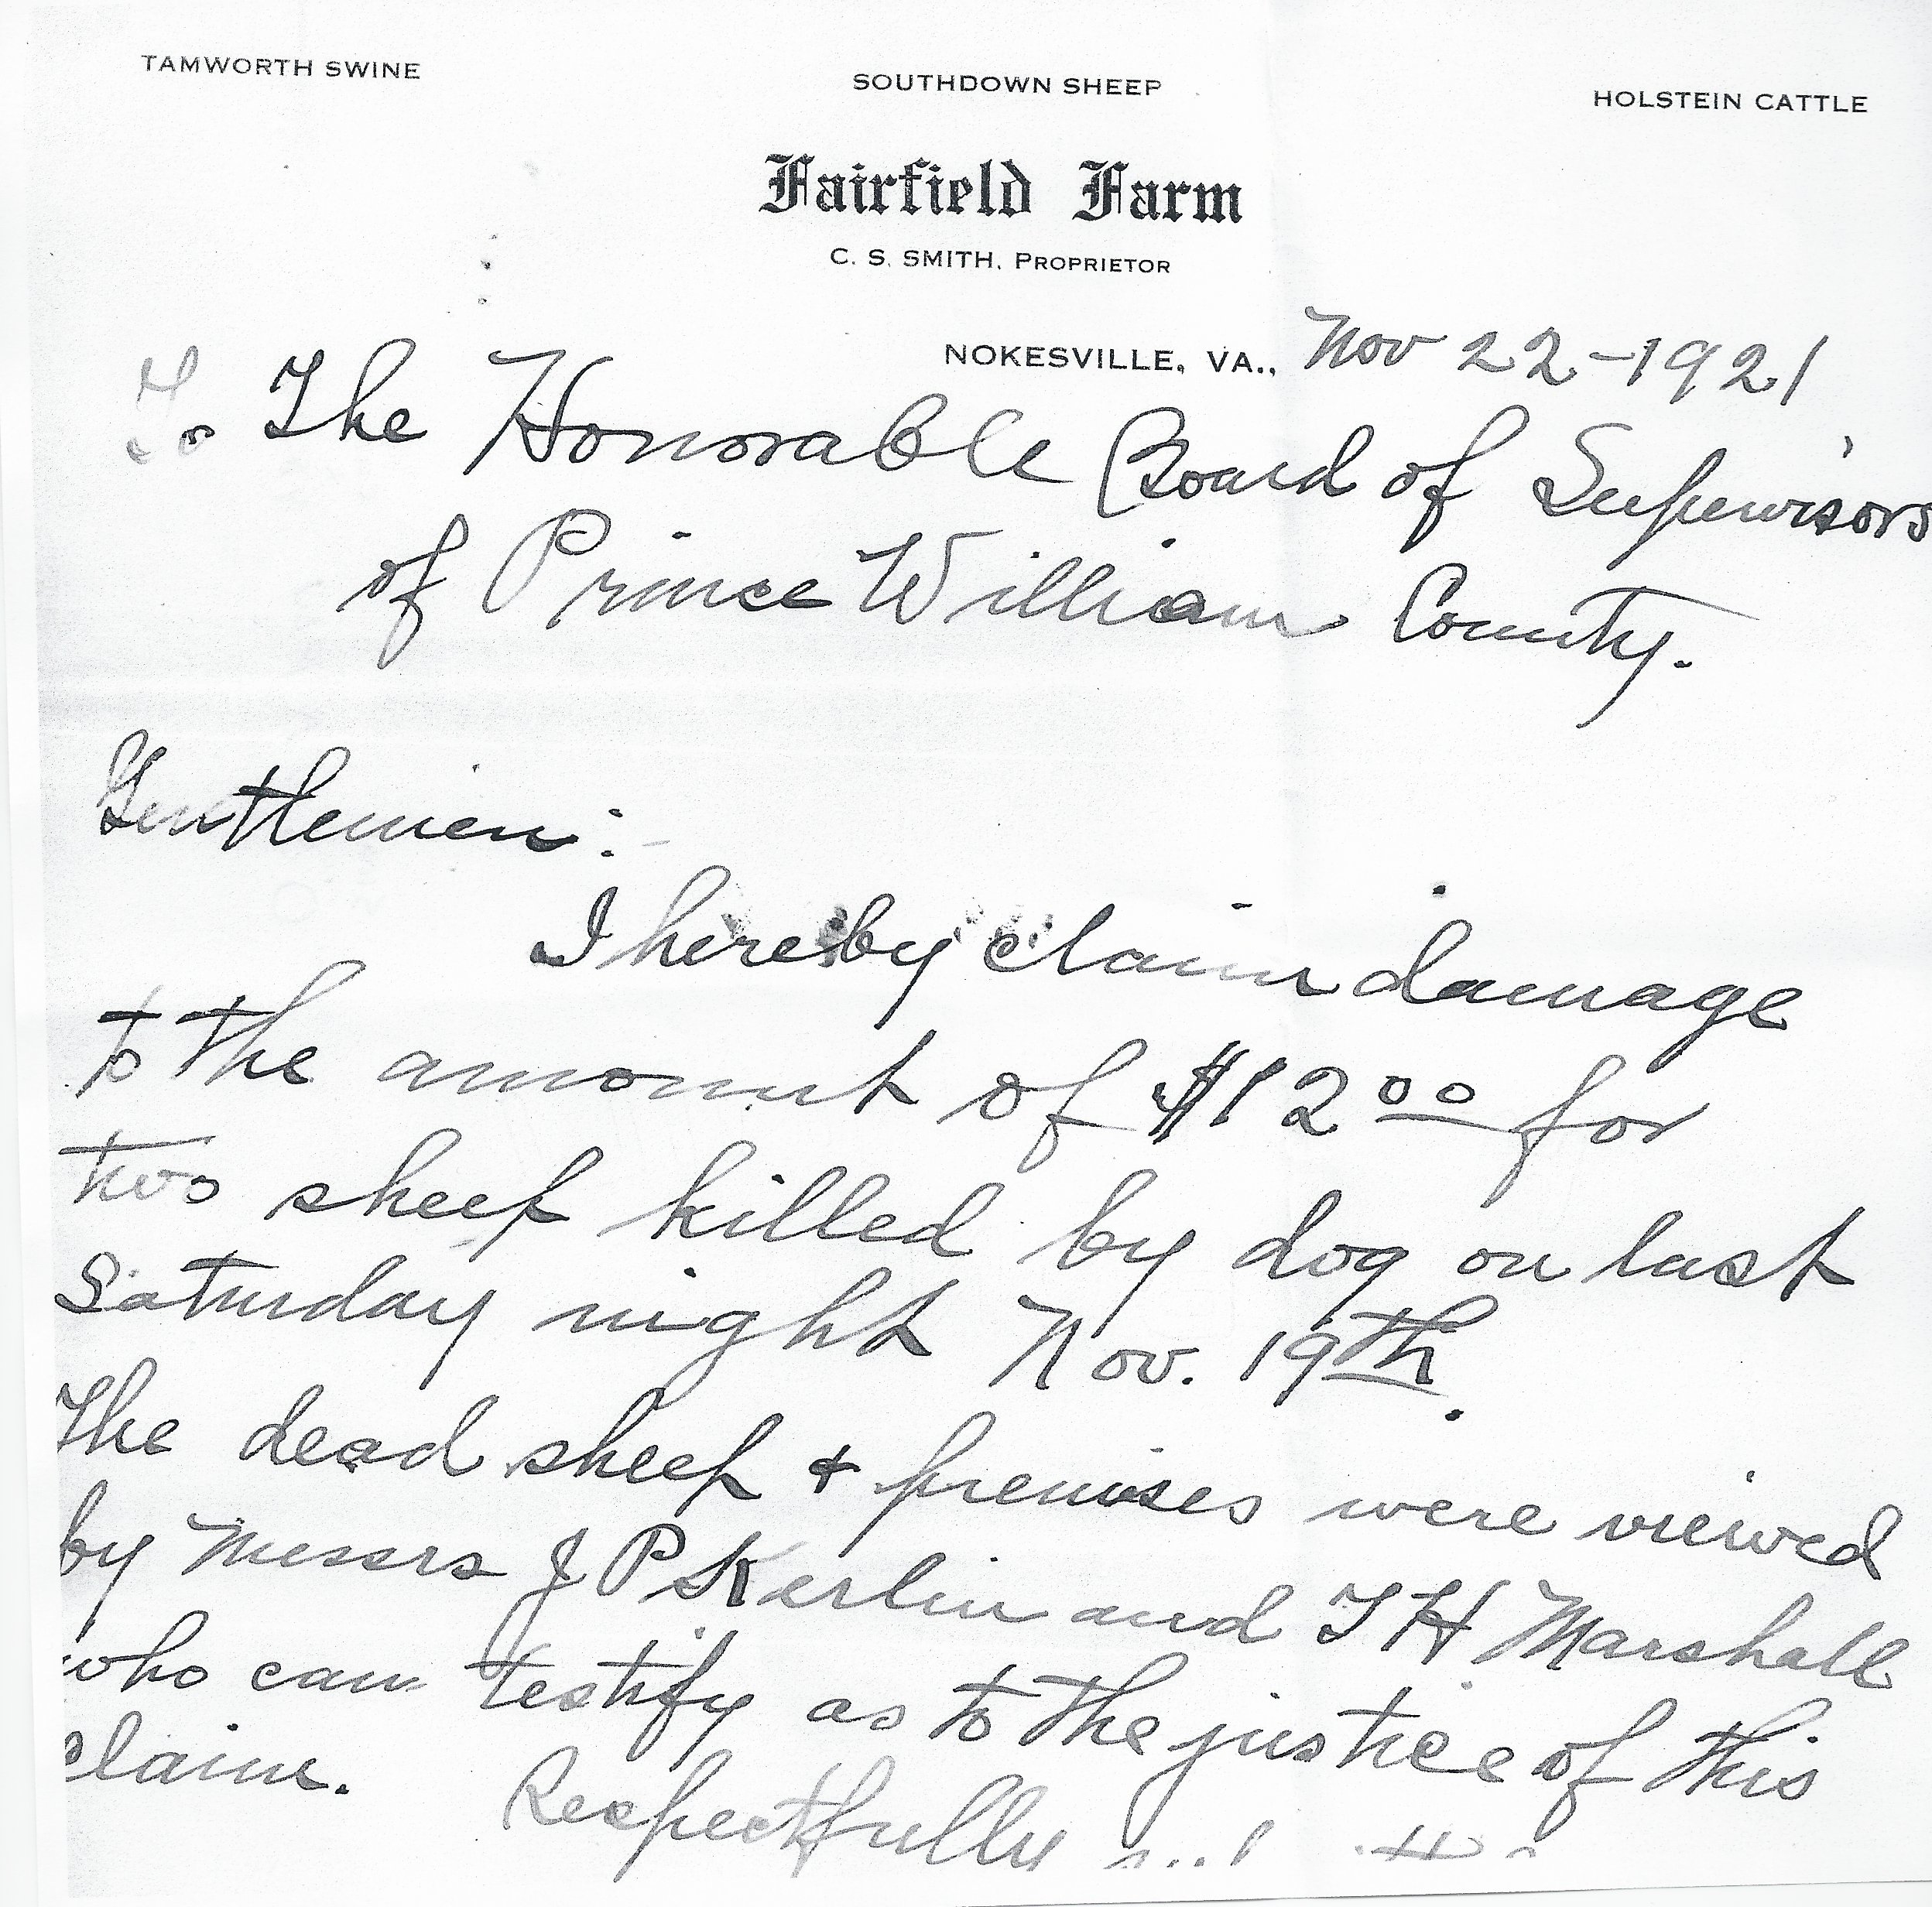 TAMWORTH SWINE SOUTHDOWN SHEEP HOLSTEIN CATTLE
Fairfield Farm
C. S. SMITH, PROPRIETOR
NOKESVILLE, VA., Nov 22-1921
To The Honorable Board of Supervisors
of Prince William County.
Gentlemen:
I hereby claim damage
to the amount of $12 00 for
two sheep killed by dog on last
Saturday night Nov. 19th.
The dead sheep + premises were viewed
by Messrs J P Kerlin and T H Marshall
who can testify as to the justice of this
claim.
Respectfully